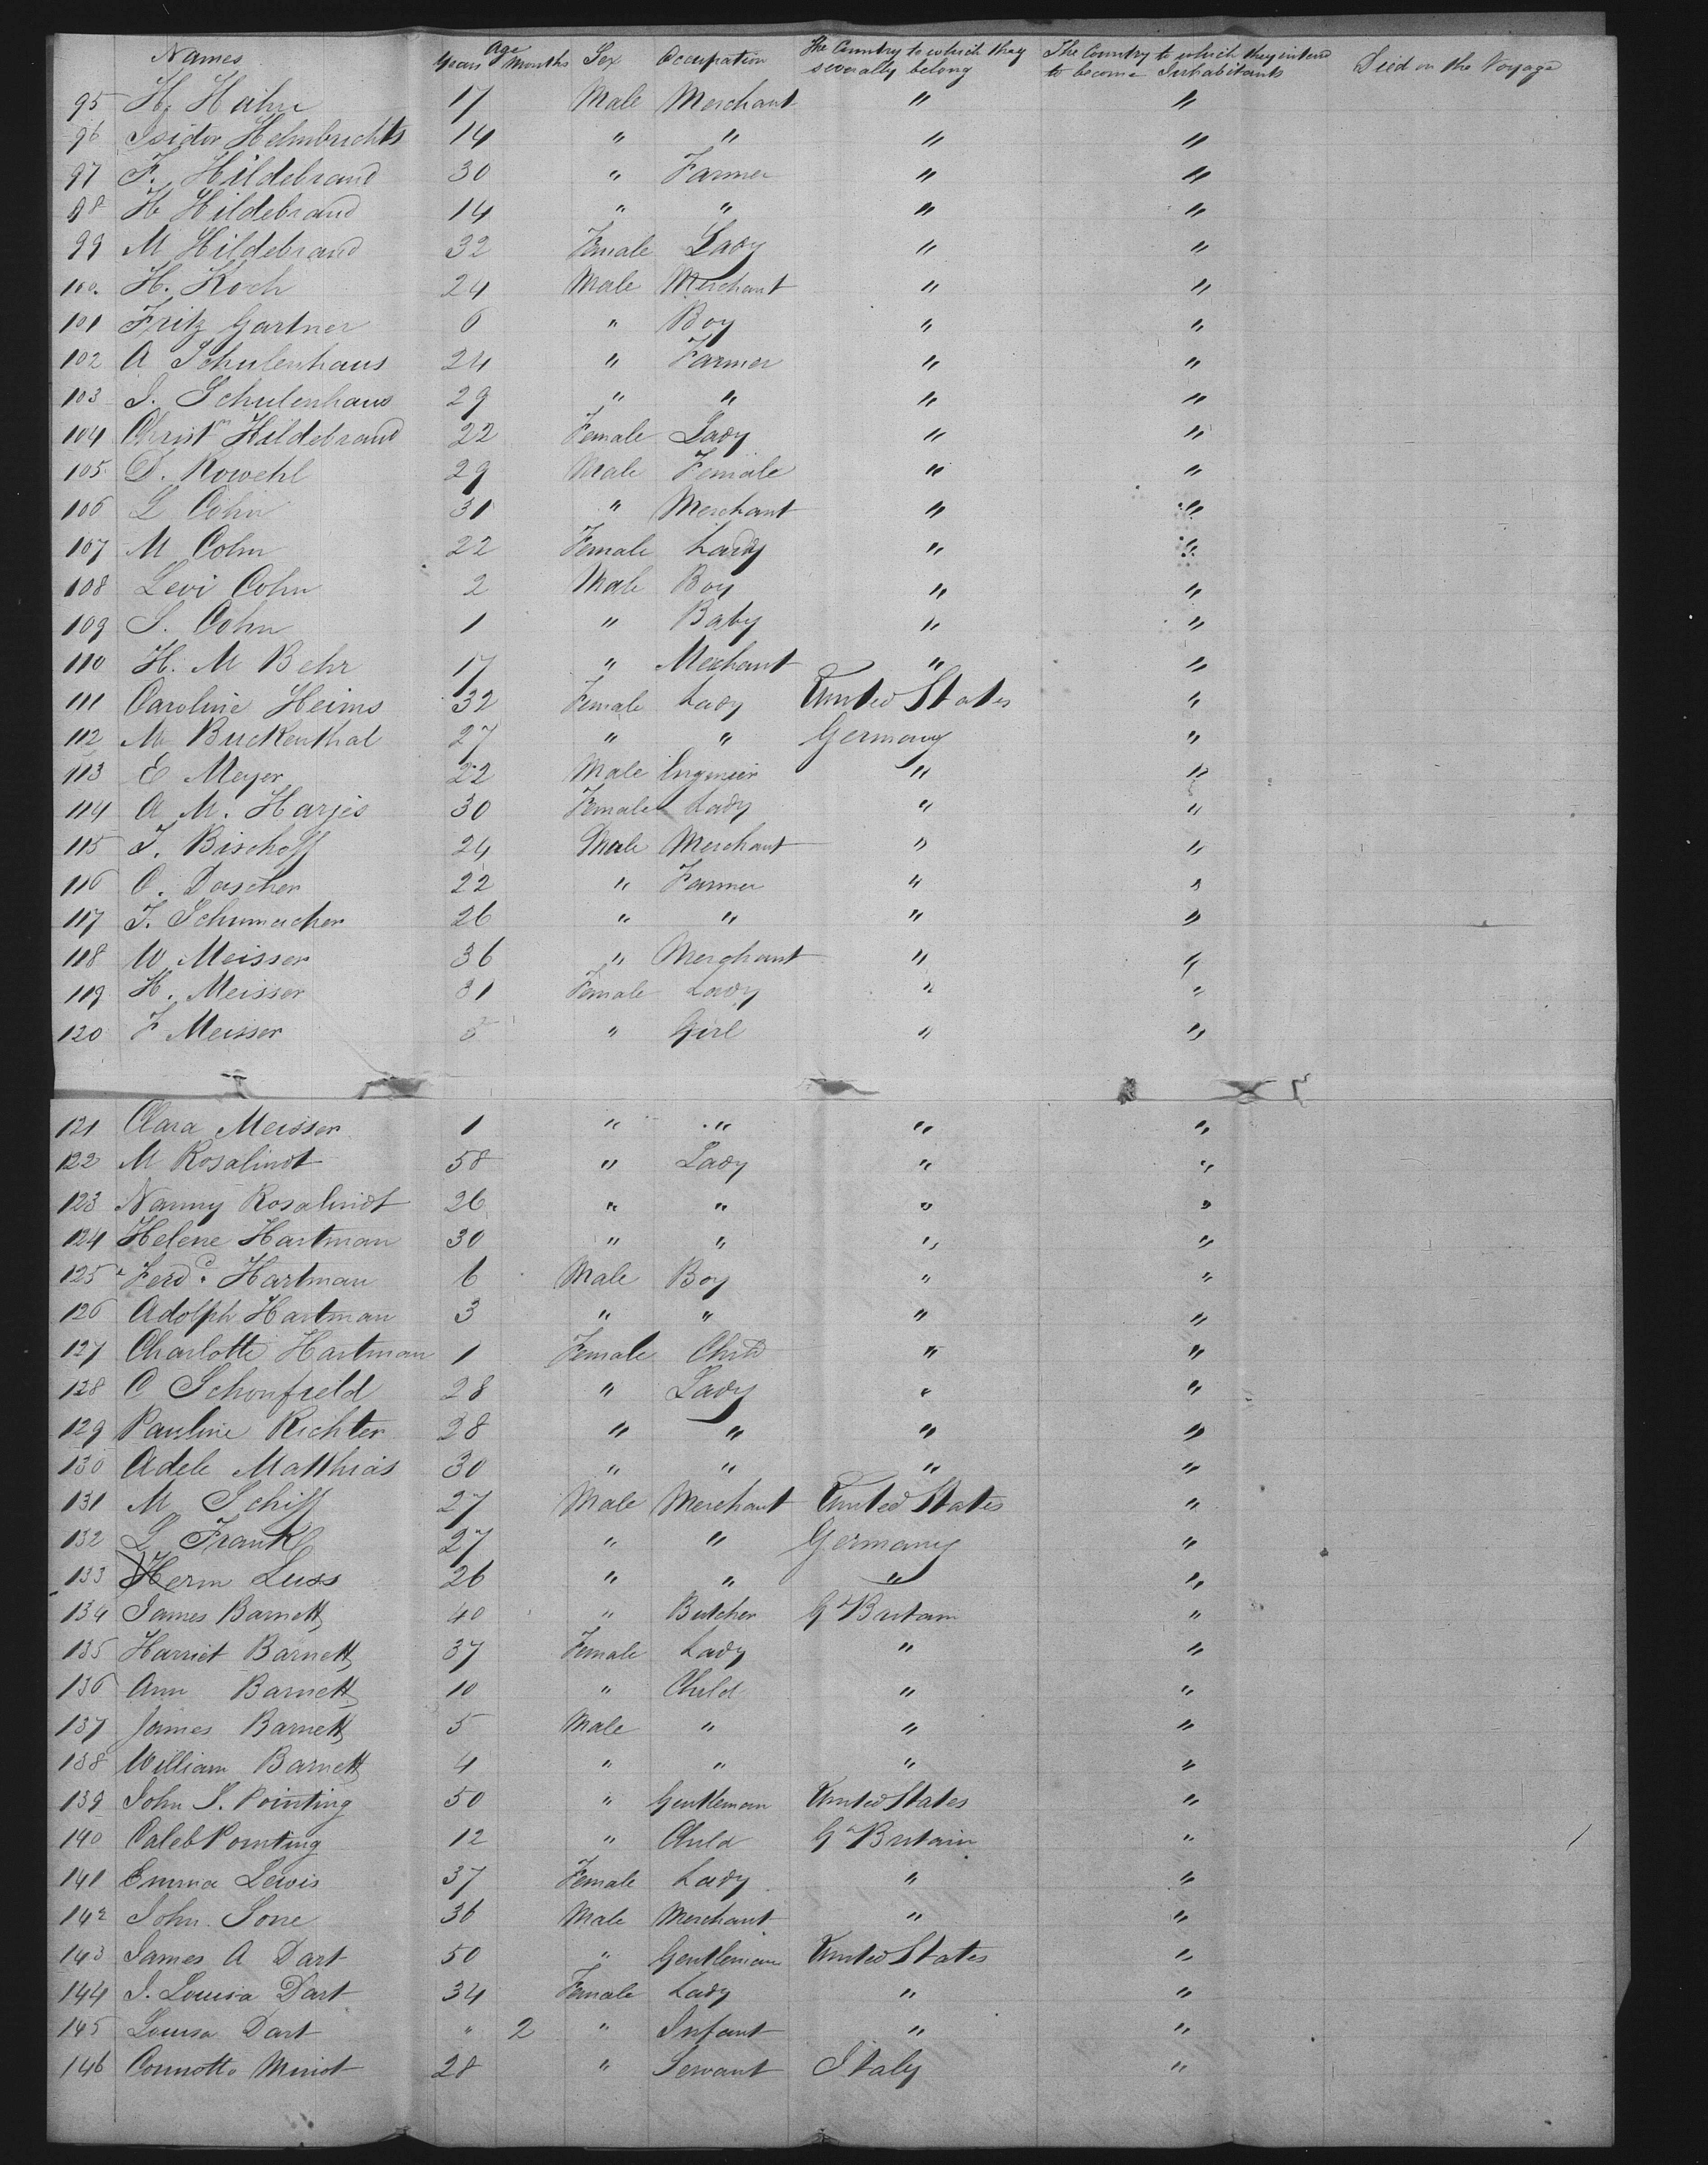 Names Age Years Months Sex Occupation The Country to which they severally belong The Country to which they intend to become Inhabitants Died on the Voyage
95 H. Hahn 17 Male Merchant " "
96 Isidor Helmbrichts 14 " " " "
97 F. Hildebrand 30 " Farmer " "
98 H Hildebrand 14 " " " "
99 M Hildebrand 32 Female Lady " "
100. H. Koch 24 Male Merchant " "
101 Fritz Gartner 6 " Boy " "
102 A Schulenhaus 24 " Farmer " "
103 I. Schulenhaus 29 " " " "
104 Christn Hildebrand 22 Female Lady " "
105 D. Rowehl 29 Male Female " "
106 L Cohn 31 " Merchant " "
107 M Cohn 22 Female Lady " "
108 Levi Cohn 2 Male Boy " "
109 S. Cohn 1 " Baby " "
110 H. M Behr 17 " Merchant " "
111 Caroline Heims 32 Female Lady United States "
112 M Buckenthal 27 " " Germany "
113 E Meyer 22 Male Ingenieir " "
114 A M. Harjes 30 Female Lady " "
115 J. Bischoff 24 Male Merchant " "
116 O. Dascher 22 " Farmer " "
117 J. Schumacher 26 " " " "
118 W Meisser 36 " Merchant " "
119 H. Meisser 31 Female Lady " "
120 F Meisser 5 " Girl " "
121 Clara Meisser 1 " " " "
122 M Rosalindt 58 " Lady " "
123 Nanny Rosalindt 26 " " " "
124 Helene Hartman 30 " " " "
125 Ferdd. Hartman 6 Male Boy " "
126 Adolph Hartman 3 " " " "
127 Charlotte Hartman 1 Female Child " "
128 C Schonfield 28 " Lady " "
129 Pauline Richter 28 " " " "
130 Adele Matthias 30 " " " "
131 M Schiff 27 Male Merchant United States "
132 L Frankl 27 " " Germany "
133 Herm Luss 26 " " " "
134 James Barnett 40 " Butcher Gt Britain "
135 Harriet Barnett 37 Female Lady " "
136 Ann Barnett 10 " Child " "
137 James Barnett 5 Male " " "
138 William Barnett 4 " " " "
139 John S. Pointing 50 " Gentleman United States "
140 Caleb Pointing 12 " Child Gt Britain "
141 Emma Lewis 37 Female Lady " "
142 John Sone 36 Male Merchant " "
143 James A Dart 50 " Gentleman United States "
144 I. Louisa Dart 34 Female Lady " "
145 Louisa Dart " 2 " Infant " "
146 Connotto Miniot 28 " Servant Italy "